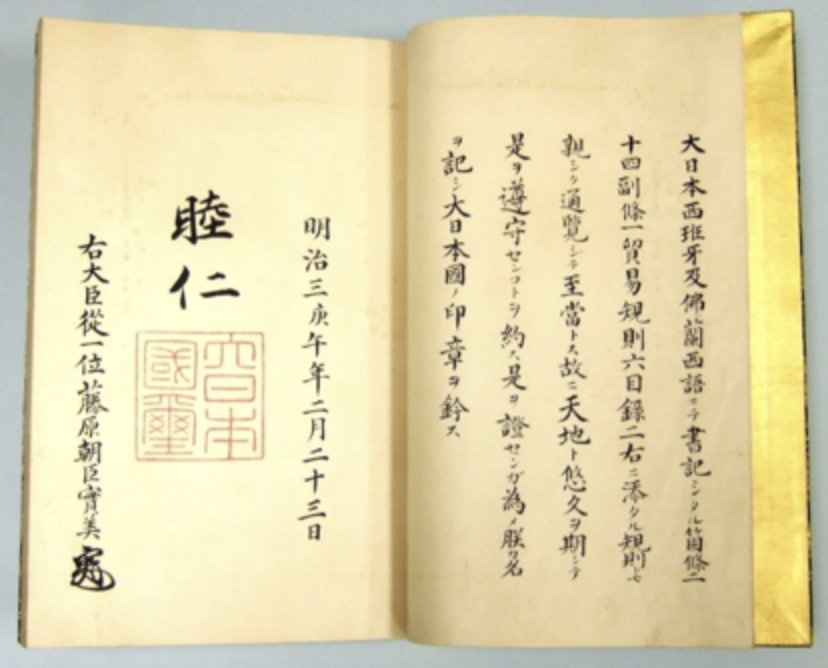 大日本西班牙及佛蘭西語ニテ書記シタル箇條二
十四副條一貿易規則六目錄二右ニ添タル規則トモ
親シク通覧シテ至當トス故ニ天地ト悠久ヲ期シテ
是ヲ遵守センコトヲ約ス是ヲ證センガ為メ朕カ名
ヲ記シ大日本國ノ印章ヲ鈐ス
明治三庚午年二月二十三日
睦仁
大日本
國璽
右大臣從一位藤原朝臣實美